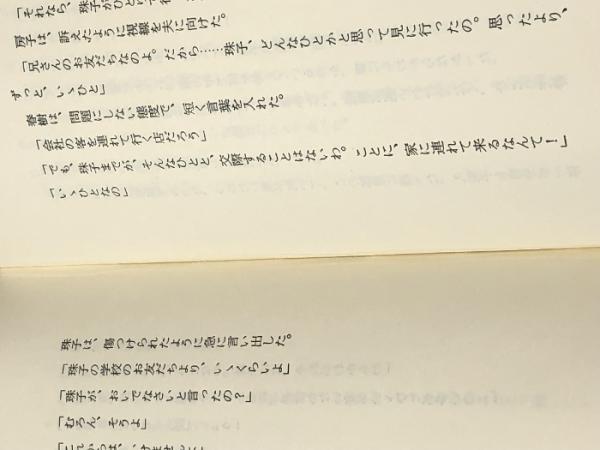 「それなら、珠子がひと
房子は、訴えたように視線を夫に向けた。
「兄さんのお友だちなのよ。だから……珠子、どんなひとかと思って見に行ったの。思ったより、
ずっと、いゝひと」
春樹は、問題にしない態度で、短く言葉を入れた。
「会社の客を連れて行く店だろう」
「でも、珠子までが、そんなひとと、交際することはないわ。ことに、家に連れて来るなんて！」
「いゝひとなの」
珠子は、傷つけられたように急に言い出した。
「珠子の学校のお友だちより、いゝくらいよ」
「珠子が、おいでなさいと言ったの？」
「むろん、そうよ」